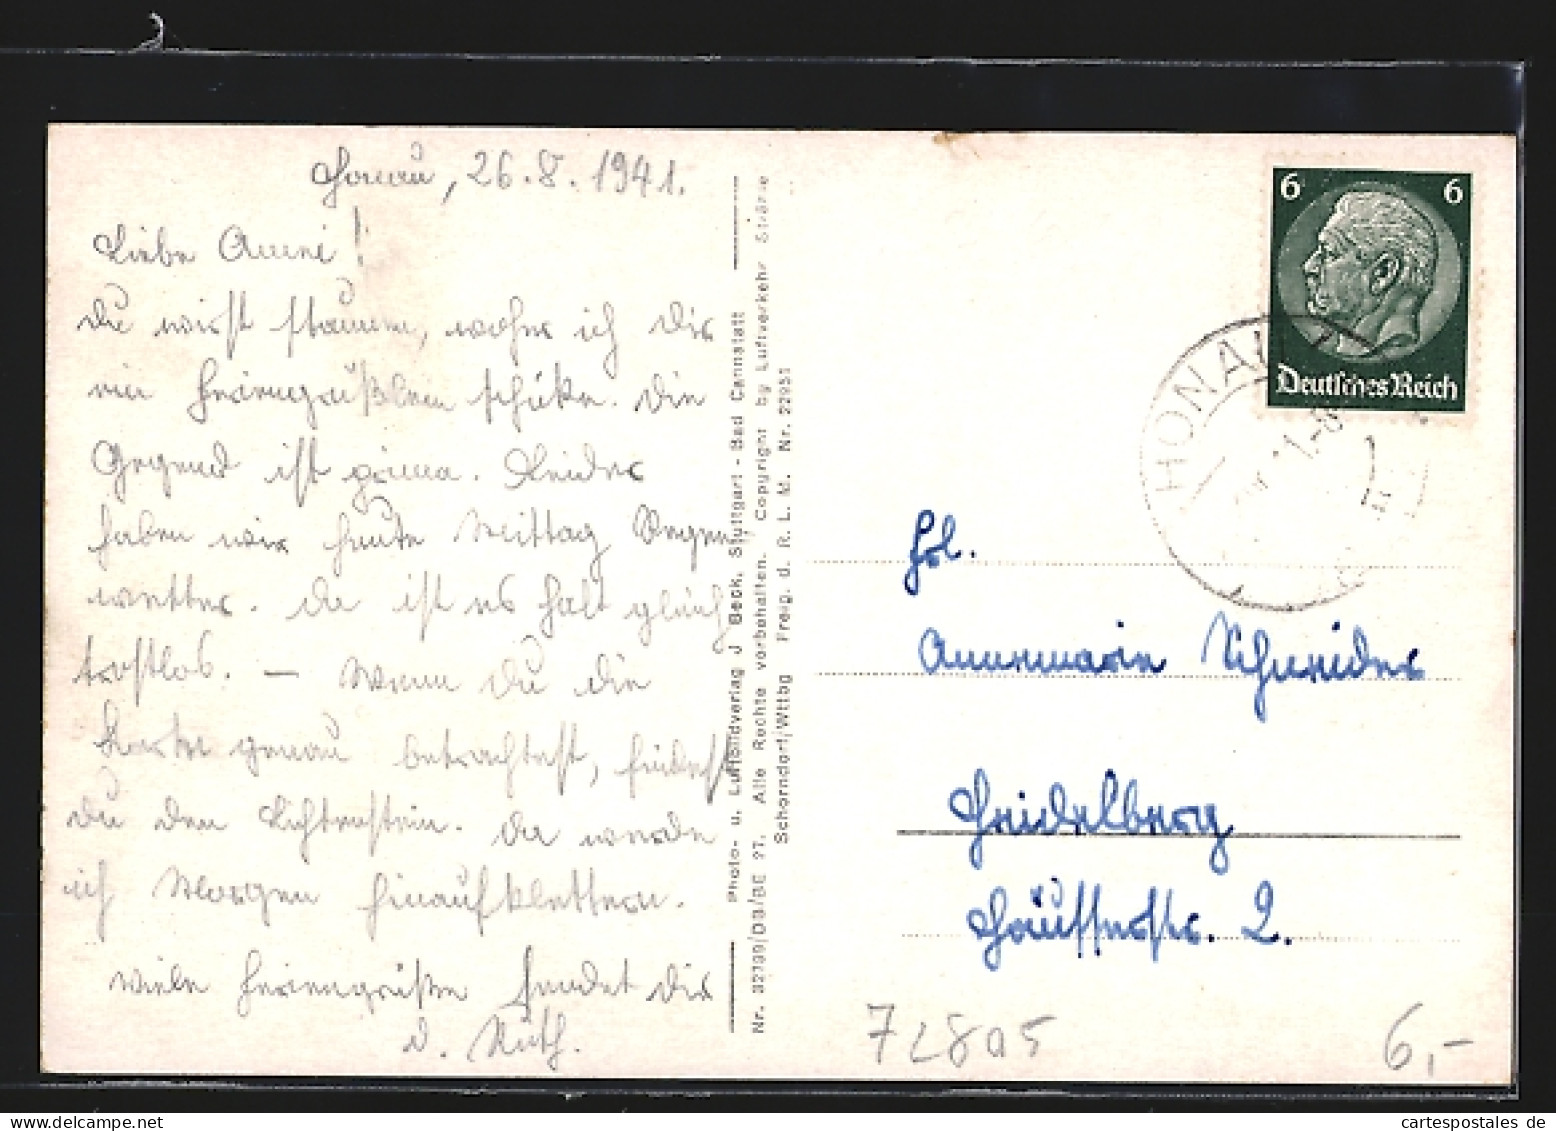 Honau, 26.8.1941.
Liebe Anni!
Du wirst staunen, woher ich Dir
ein Feriengrüßlein schicke. Die
Gegend ist prima. Leider
haben wir heute Mittag Regen-
wetter. Da ist es halt gleich
trostlos. — Wenn Du die
Karte genau betrachtest, findest
Du den Lichtenstein. Da werde
ich Morgen hinaufklettern.
Viele Feriengrüße sendet Dir
d. Ruth.
Photo- u. Luftbildverlag J Beck, Stuttgart - Bad Cannstatt
Nr. 32799/DB/BE 27. Alle Rechte vorbehalten. Copyright by Luftverkehr Strähle
Schorndorf/Wttbg Freig. d. R. L. M. Nr. 22951
6 6
Deutsches Reich
HONAU
Frl.
Annemarie Schneider
Heidelberg
Häusserstr. 2.
72805
6,-
cartespostales de